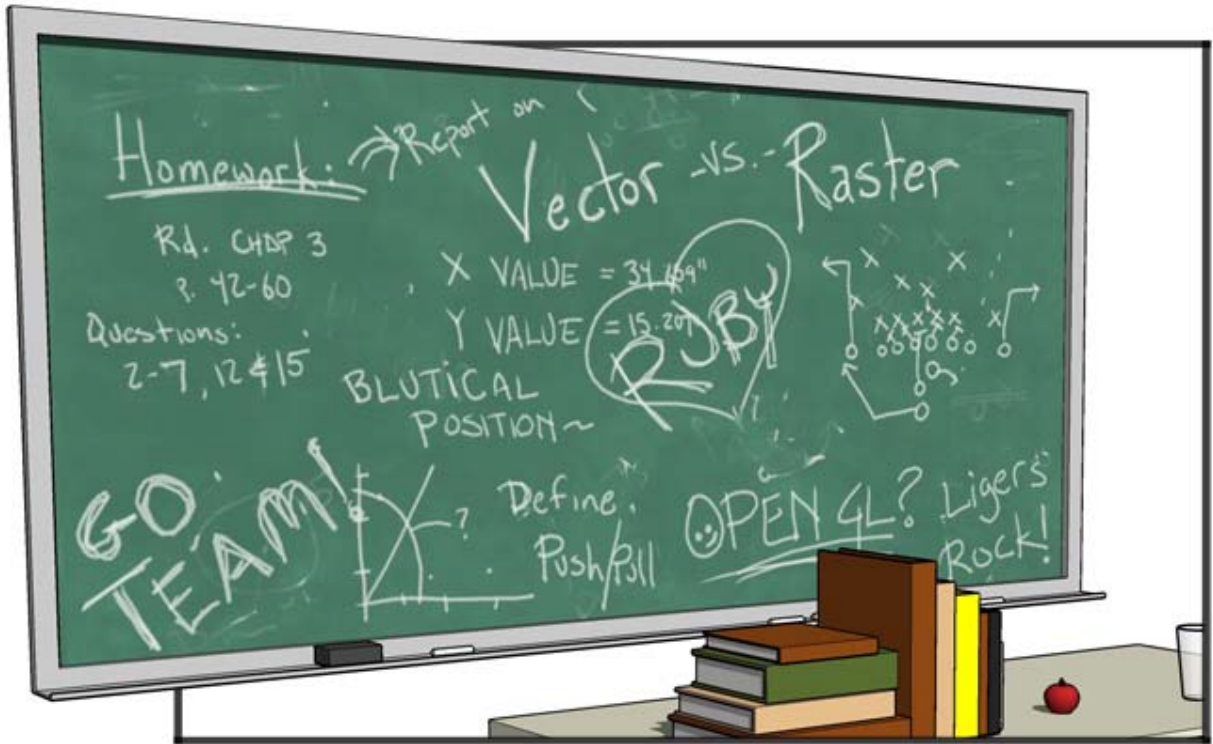 Homework:
Report on
Vector -vs.- Raster
Rd. CHAP 3
P. 42-60
Questions:
2-7, 12 & 15
X VALUE =
Y VALUE = 15.20
RJBY
BLUTICAL
POSITION ~
GO
TEAM!
?
Define:
Push/Pull
OPEN GL?
Ligers
Rock!